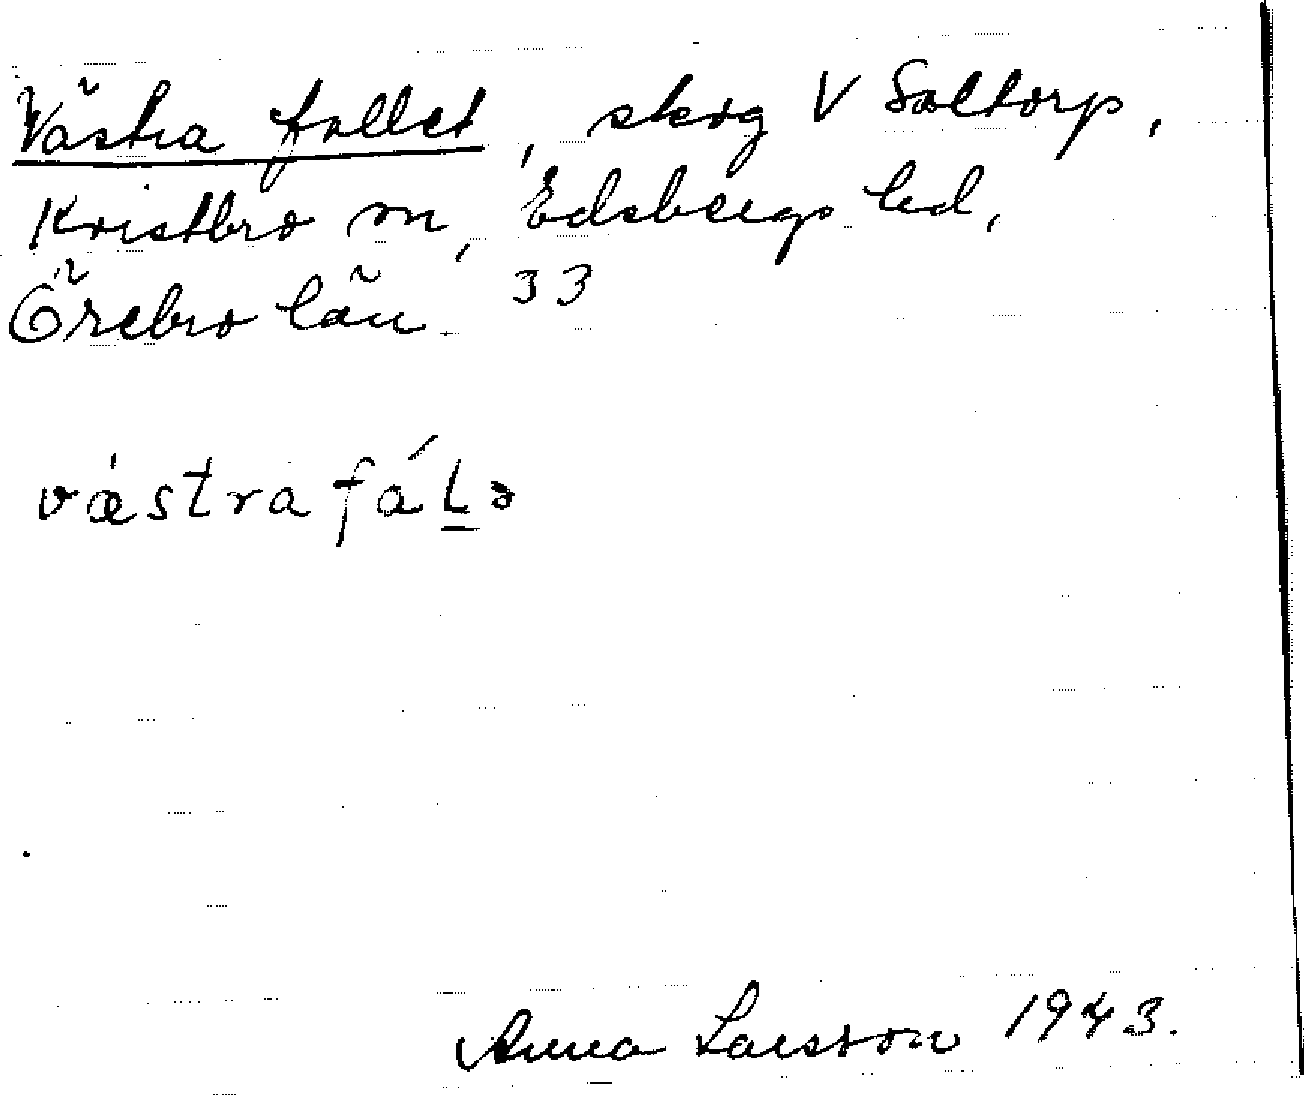 Västra fallet, skog V Saltorp,
Kvistbro sn, Edsbergs hd,
Örebro län 33
væ̀stra fáḺə
Anna Larsson 1943.